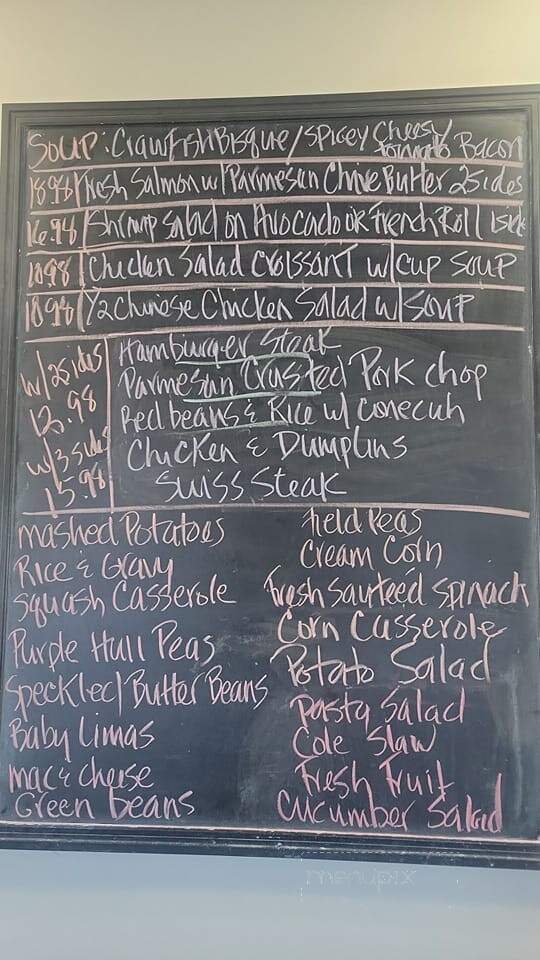 Soup: Crawfish Bisque / Spicey Cheesy Tomato Bacon
18.98 Fresh Salmon w/ Parmesan Chive Butter 2 Sides
16.98 Shrimp Salad on Avocado or French Roll 1 side
10.98 Chicken Salad Croissant w/ cup soup
10.98 1/2 Chinese Chicken Salad w/ soup
w/ 2 sides
12.98
w/ 3 sides
15.98
Hamburger Steak
Parmesan Crusted Pork chop
Red beans & Rice w/ conecuh
Chicken & Dumplins
Swiss Steak
mashed Potatoes
Rice & Gravy
Squash Casserole
Purple Hull Peas
Speckled Butter Beans
Baby Limas
mac & cheese
Green beans
field Peas
Cream Corn
Fresh Sauteed Spinach
Corn Casserole
Potato Salad
Pasta Salad
Cole Slaw
Fresh Fruit
Cucumber Salad
menupix